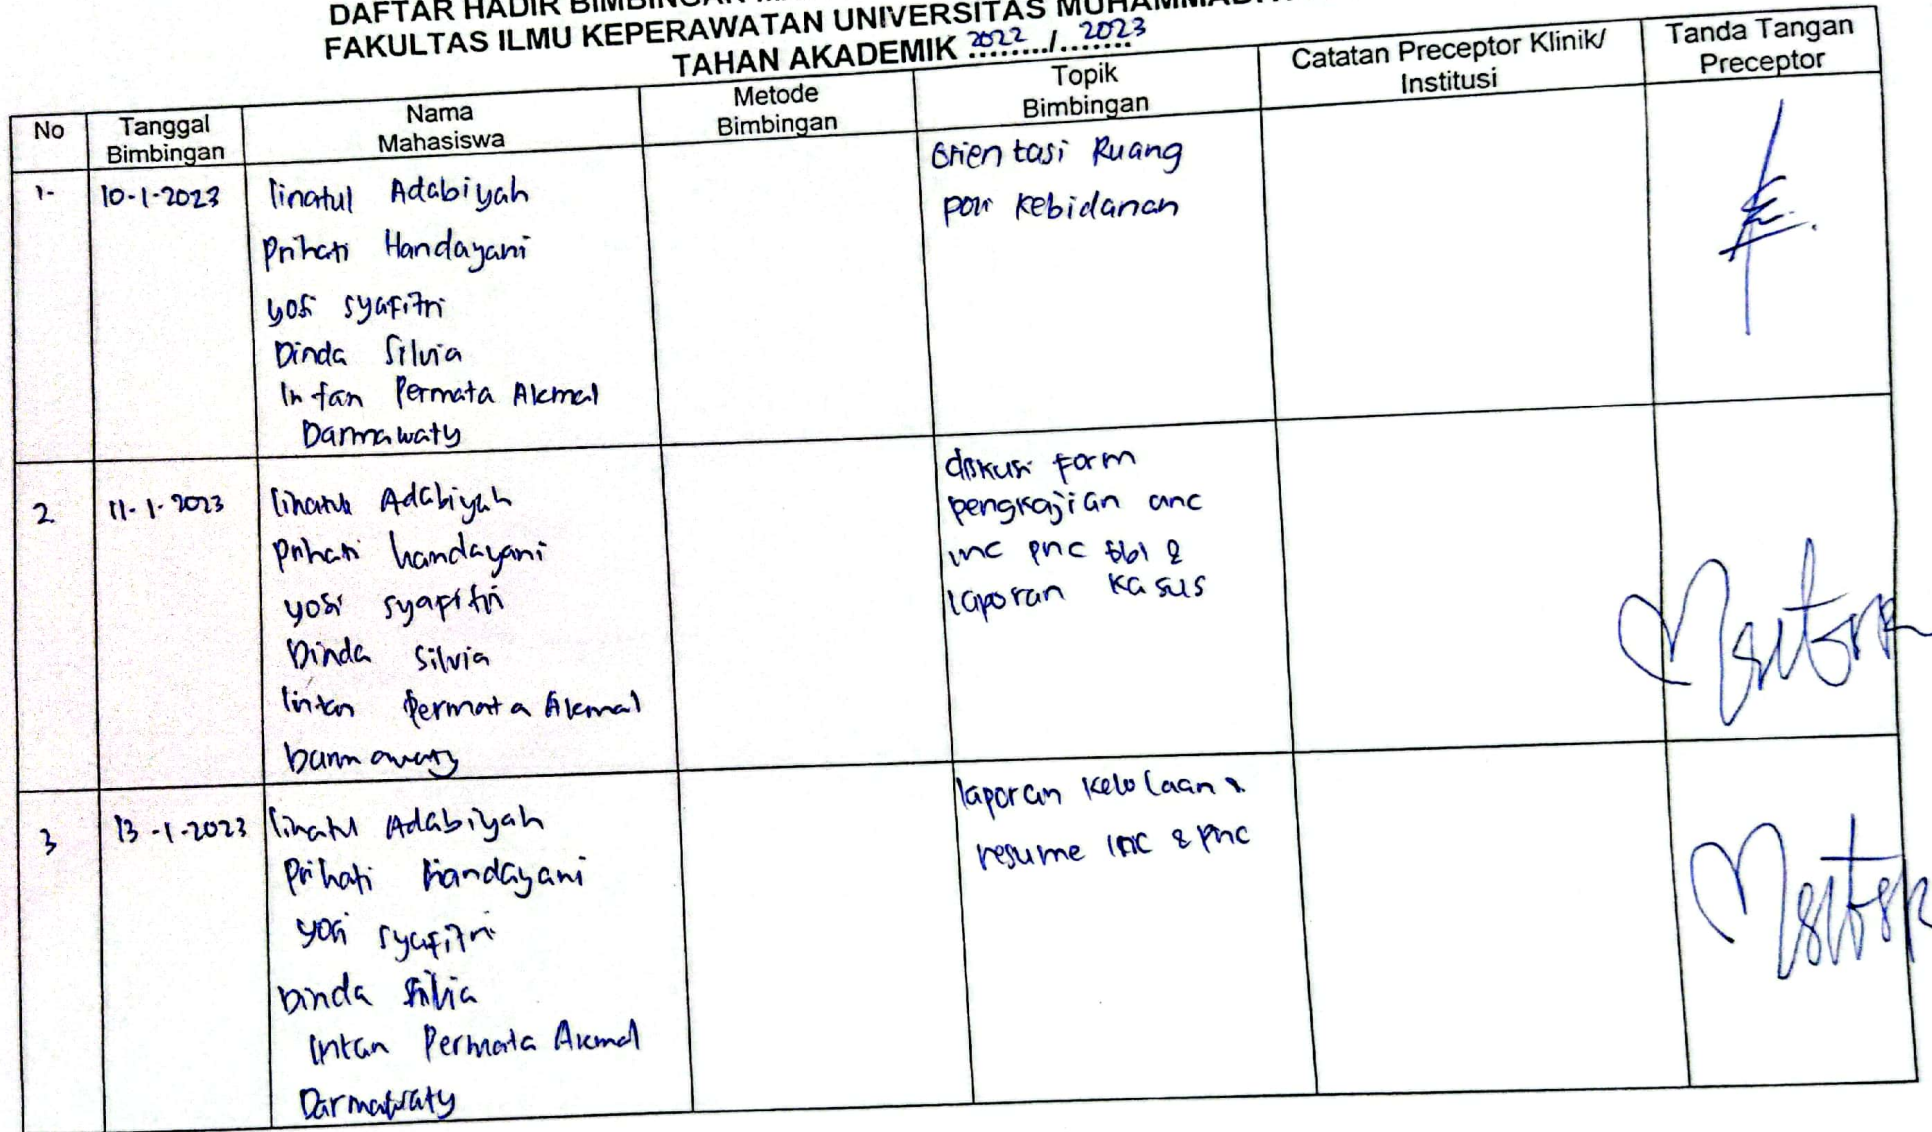 DAFTAR HADIR BIMBINGAN
FAKULTAS ILMU KEPERAWATAN UNIVERSITAS
TAHAN AKADEMIK 2022 / 2023
No
Tanggal
Bimbingan
Nama
Mahasiswa
Metode
Bimbingan
Topik
Bimbingan
Catatan Preceptor Klinik/
Institusi
Tanda Tangan
Preceptor
1-
10-1-2023
linatul Adabiyah
Prihati Handayani
yosi syafitri
Dinda Silvia
Intan Permata Akmal
Darmawaty
Orientasi Ruang
poli Kebidanan
2
11-1-2023
linatul Adabiyah
prihati handayani
yosi syapitri
Dinda Silvia
Intan Permata Akmal
Darmawaty
diskusi form
pengkajian anc
inc pnc bbl &
laporan kasus
3
13-1-2023
linatul Adabiyah
Prihati handayani
yosi syafitri
Dinda Silvia
Intan Permata Akmal
Darmawaty
laporan kelolaan &
resume inc & pnc